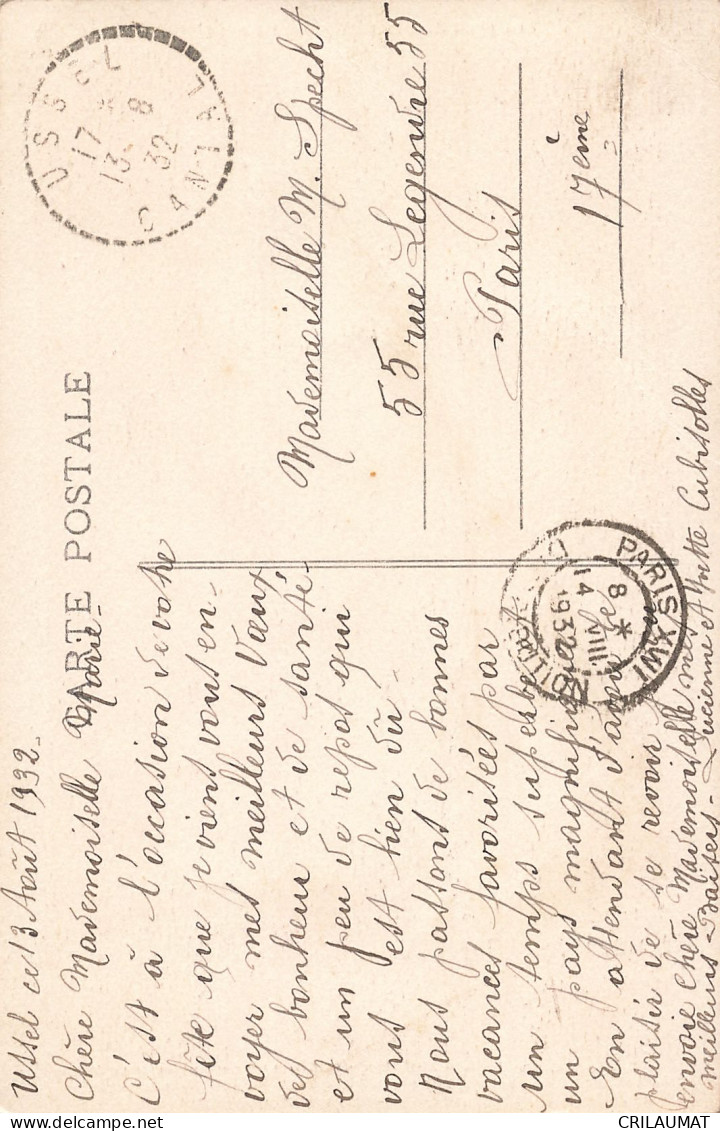 USSEL
17 *
13 8
32
CANTAL
CARTE POSTALE
Mademoiselle M. Specht
55 rue Legendre 55
Paris
17ème
Ussel ce 13 Août 1932.
Chère Mademoiselle Marie
C'est à l'occasion de votre
fête que je viens vous en-
voyer mes meilleurs vœux
de bonheur et de santé
et un peu de repos qui
vous est bien dû
Nous passons de bonnes
vacances favorisées par
un temps superbe
un pays magnifique
En attendant d'avoir le
plaisir de se revoir je
envoie Chère Mademoiselle mes
meilleurs Baisers - Lucienne et Yvette Cubisolles
PARIS XVII
8 *
14 VIII
1932
DISTRIBUTION
CRILAUMAT